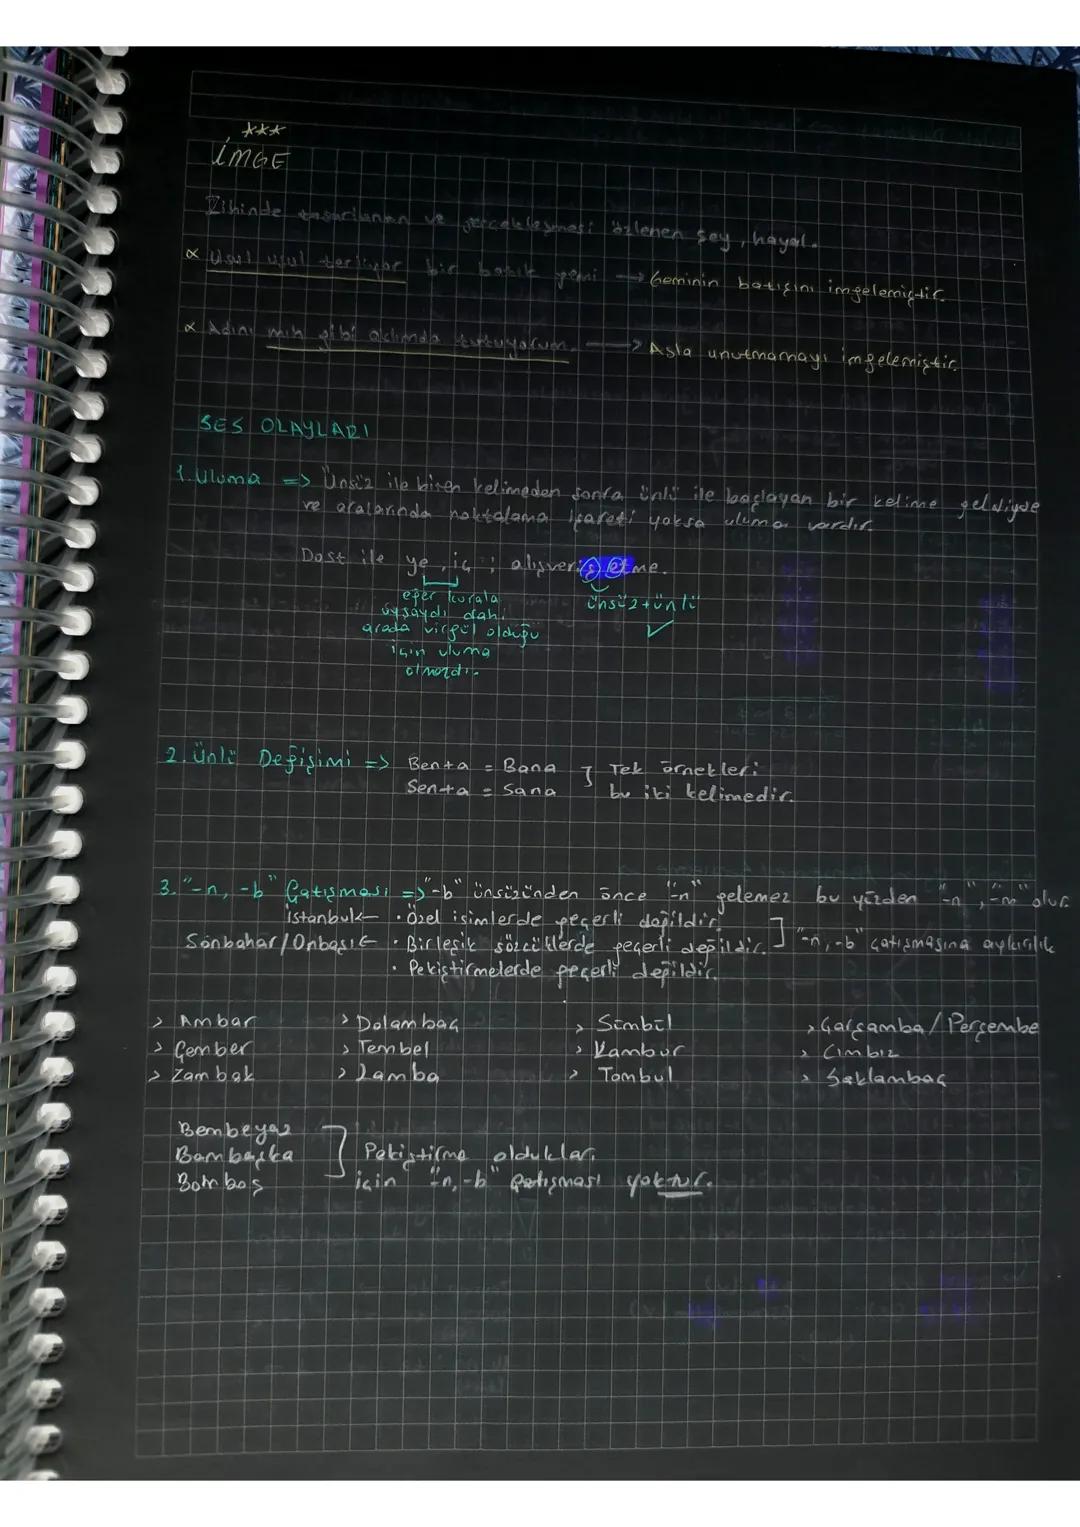 ***
İMGE
Zihinde tasarlanan ve gerçekleşmesi özlenen şey, hayal.
∝ Usul usul terliyor bir batık gemi → Geminin batışını imgelemiştir.
∝ Adını mıh gibi aklımda tutuyorum. → Asla unutmamayı imgelemiştir.
SES OLAYLARI
1. Uluma => Ünsüz ile biten kelimeden sonra ünlü ile başlayan bir kelime geldiyse
ve aralarında noktalama işareti yoksa uluma vardır.
Dost ile ye, iç ; alışveriş etme.
eğer kurala
uysaydı dahi
arada virgül olduğu
için uluma
olmazdı.
ünsüz+ünlü
✓
2. Ünlü Değişimi => Ben+a = Bana ] Tek örnekleri
Sen+a = Sana bu iki kelimedir.
3. "-n, -b" Çatışması => "-b" ünsüzünden önce "-n" gelemez bu yüzden "-n", "-m" olur.
İstanbul ← • Özel isimlerde geçerli değildir.
Sonbahar/Onbaşı ← • Birleşik sözcüklerde geçerli değildir. ] "-n, -b" çatışmasına aykırılık
• Pekiştirmelerde geçerli değildir.
> Ambar > Dolambaç > Sümbül > Çarşamba / Perşembe
> Çember > Tembel > Kambur > Cımbız
> Zambak > Lamba > Tombul > Saklambaç
Bembeyaz
Bambaşka ] Pekiştirme oldukları
Bomboş için "-n, -b" çatışması yoktur.